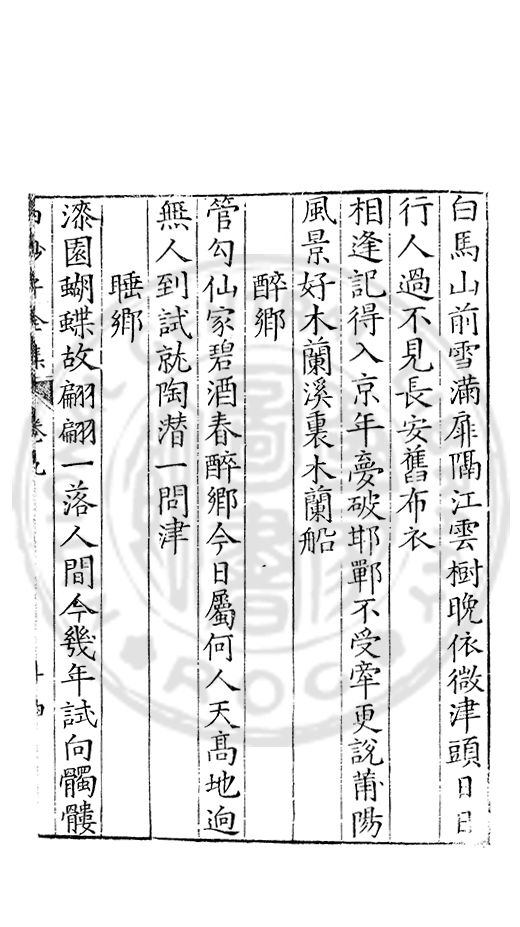 白馬山前雪滿扉隔江雲樹晚依微津頭日日
行人過不見長安舊布衣
相逢記得入京年夢破邯鄲不受牽更說莆陽
風景好木蘭溪裏木蘭船
醉鄉
管勾仙家碧酒春醉鄉今日屬何人天髙地逈
無人到試就陶潜一問津
睡鄉
漆園蝴蝶故翩翩一落人間今幾年試向髑髏
白沙子全集 卷九